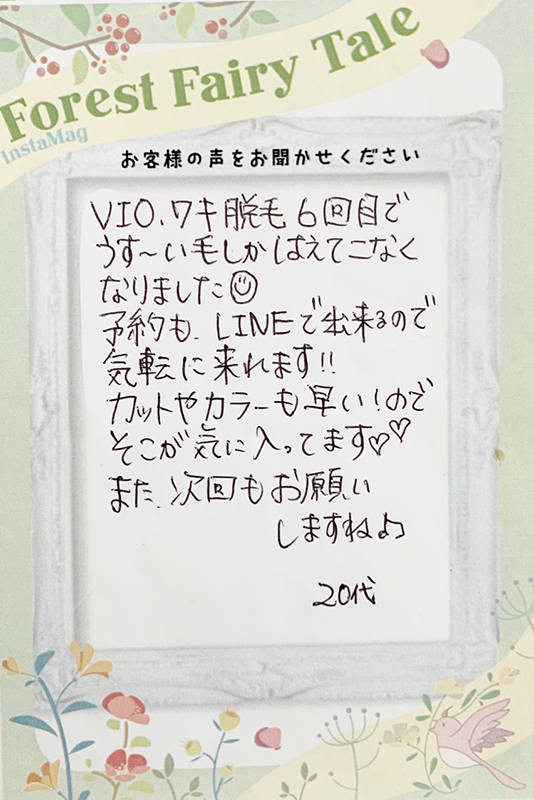 Forest Fairy Tale
InstaMag
お客様の声をお聞かせください
VIO、ワキ脱毛6回目で
うす～い毛しかはえてこなく
なりました☺
予約も、LINEで出来るので
気転に来れます!!
カットやカラーも早い!ので
そこが気に入ってます♡♡
また、次回もお願い
しますね♪
20代